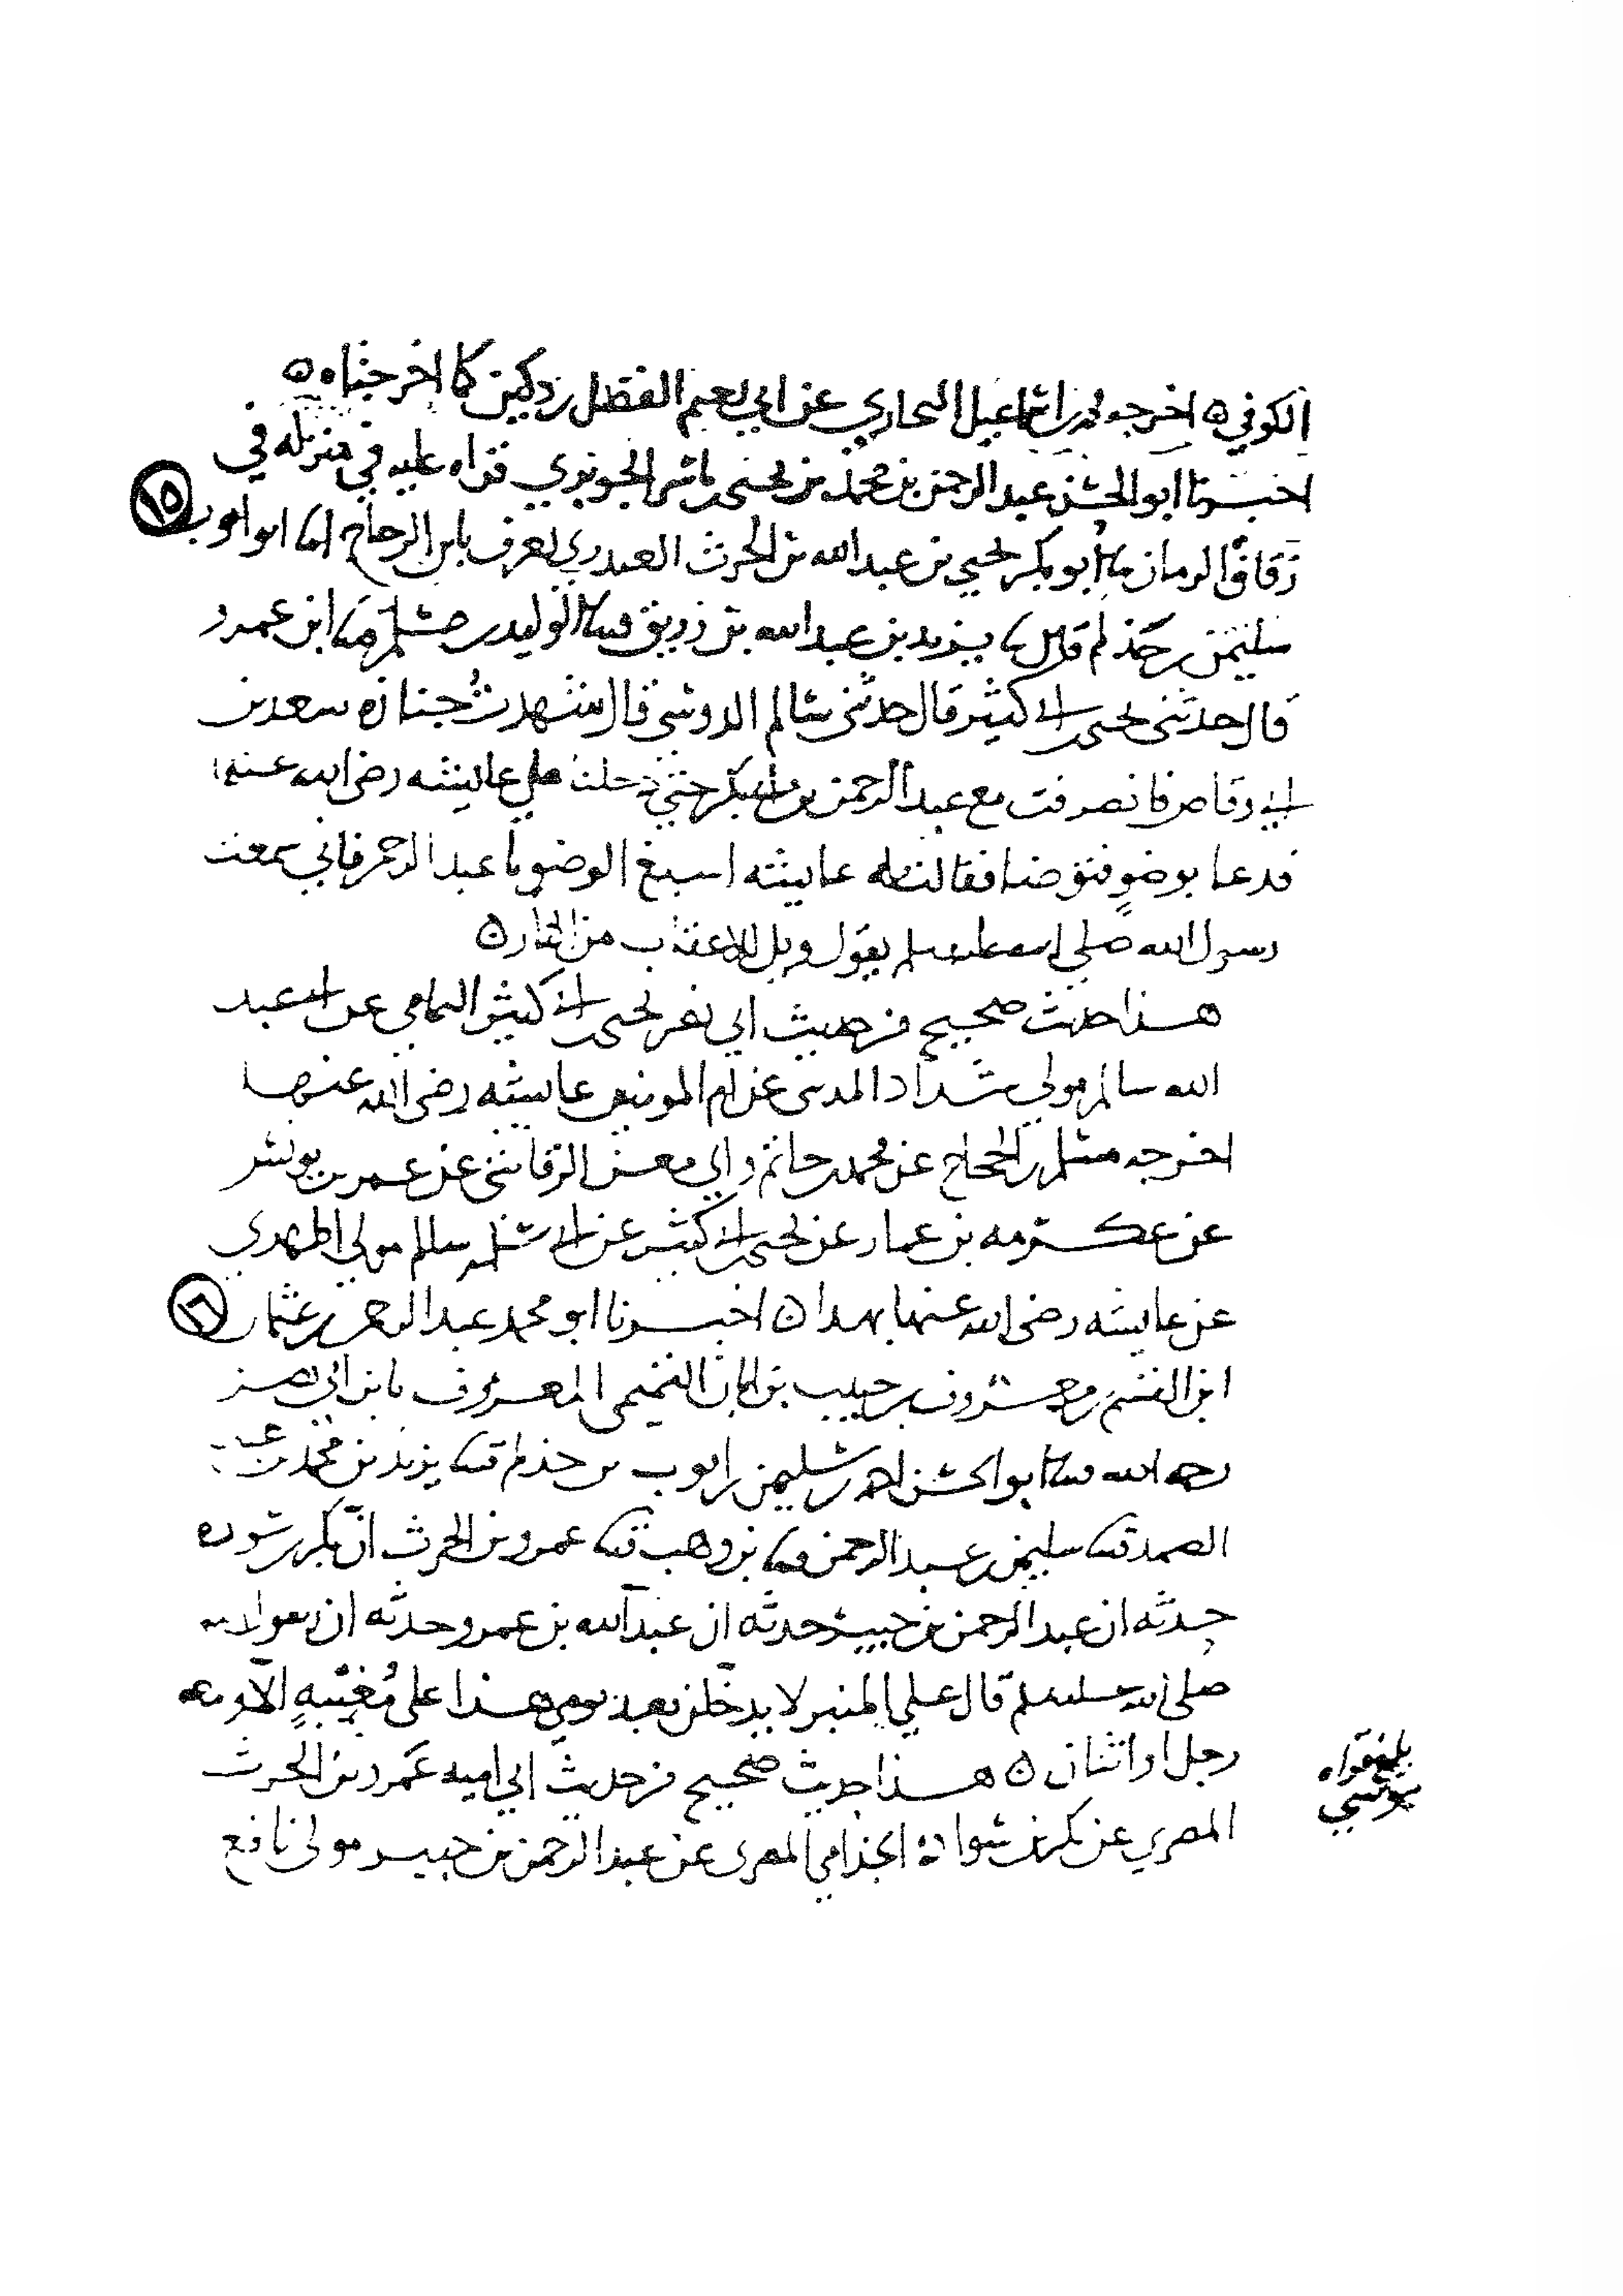 الكوفي ه اخرجه محمد بن اسماعيل البخاري عن ابي نعيم الفضل بن دكين كما اخرجناه ه
اخبرنا ابو الحسن عبد الرحمن بن محمد بن يحيى بن ياسر الجوبري قراه عليه في منزله في
زقاق الرمان ابو بكر يحيى بن عبد الله بن الحرث العبدري يعرف بابن الزجاج ابو ايوب
١٥
سليمن بن حذلم قال يزيد بن عبد الله بن زريق الوليد بن مسلم ابن عمرو
قال حدثني يحيى بن ابي كثير قال حدثني سالم الدوسي قال شهدت جنازه سعد بن
ابي وقاص فانصرفت مع عبد الرحمن بن ابي بكر حتى دخلت على عايشه رضي الله عنها
فدعا بوضو فتوضا فقالت له عايشه اسبغ الوضو يا عبد الرحمن فاني سمعت
رسول الله صلى الله عليه وسلم يقول ويل للاعقاب من النار ه
هذا حديث صحيح من حديث ابي نصر يحيى بن ابي كثير اليمامي عن ابي عبد
الله سالم مولى شداد المدني عن ام المومنين عايشه رضي الله عنها
اخرجه مسلم بن الحجاج عن محمد بن حاتم وابي معن الرقاشي عن عمر بن يونس
عن عكرمه بن عمار عن يحيى بن ابي كثير عن ابي سلمه سالم مولى المهري
عن عايشه رضي الله عنها بهذا ه اخبرنا ابو محمد عبد الرحمن بن عثمان
١٦
ابن القسم بن معروف بن حبيب بن ابان التميمي المعروف بابن ابي نصر
رحمه الله ابو الحسن احمد بن سليمن بن ايوب بن حذلم يزيد بن محمد بن عبد
الصمد سليمن بن عبد الرحمن بن وهب عمرو بن الحرث ان بكر بن سوده
حدثه ان عبد الرحمن بن جبير حدثه ان عبد الله بن عمرو حدثه ان رسول الله
صلى الله عليه وسلم قال على المنبر لا يدخلن بعد يومي هذا على مغيبه الا ومعه
رجل او اثنان ه هذا حديث صحيح من حديث ابي اميه عمرو بن الحرث
المصري عن بكر بن سواده الجذامي المصري عن عبد الرحمن بن جبير مولى نافع
بلغ قراه